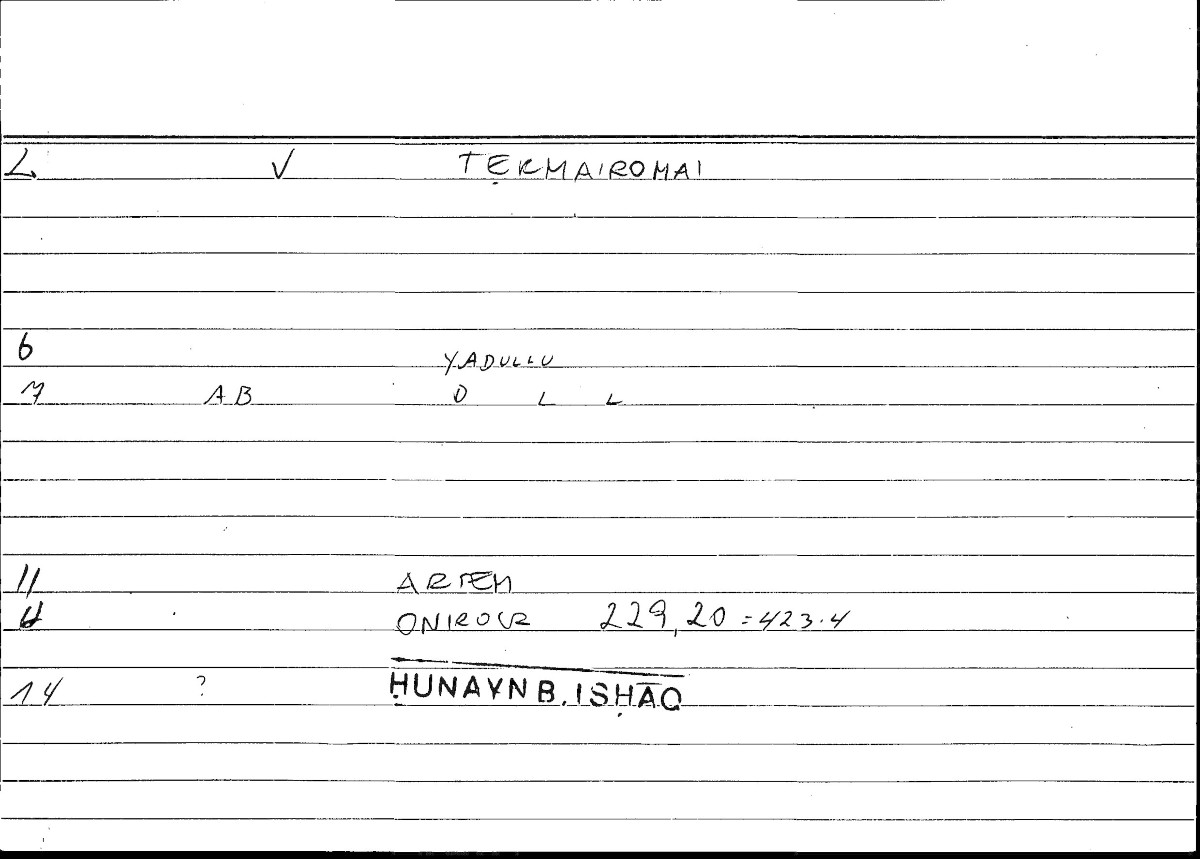 L. V TẸKMAIROMAI
6 YADULLU
7 AB D L L
11 ARTEM
ONIROCR 229,20 = 423.4
14 ? ḤUNAYN B. ISḤĀQ